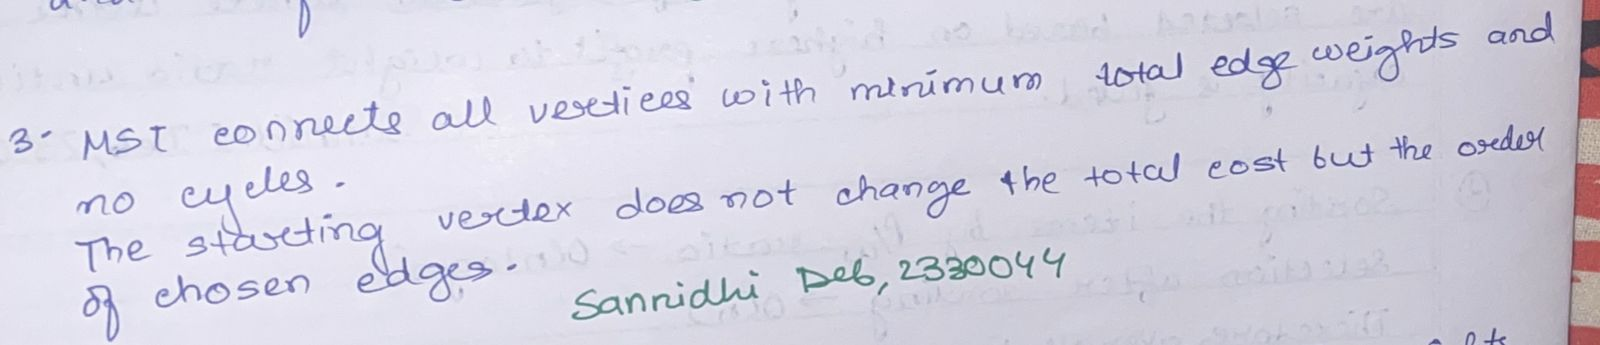 3. MST connects all vertices with minimum total edge weights and
no cycles.
The starting vertex does not change the total cost but the order
of chosen edges.
Sannidhi Deb, 2330044